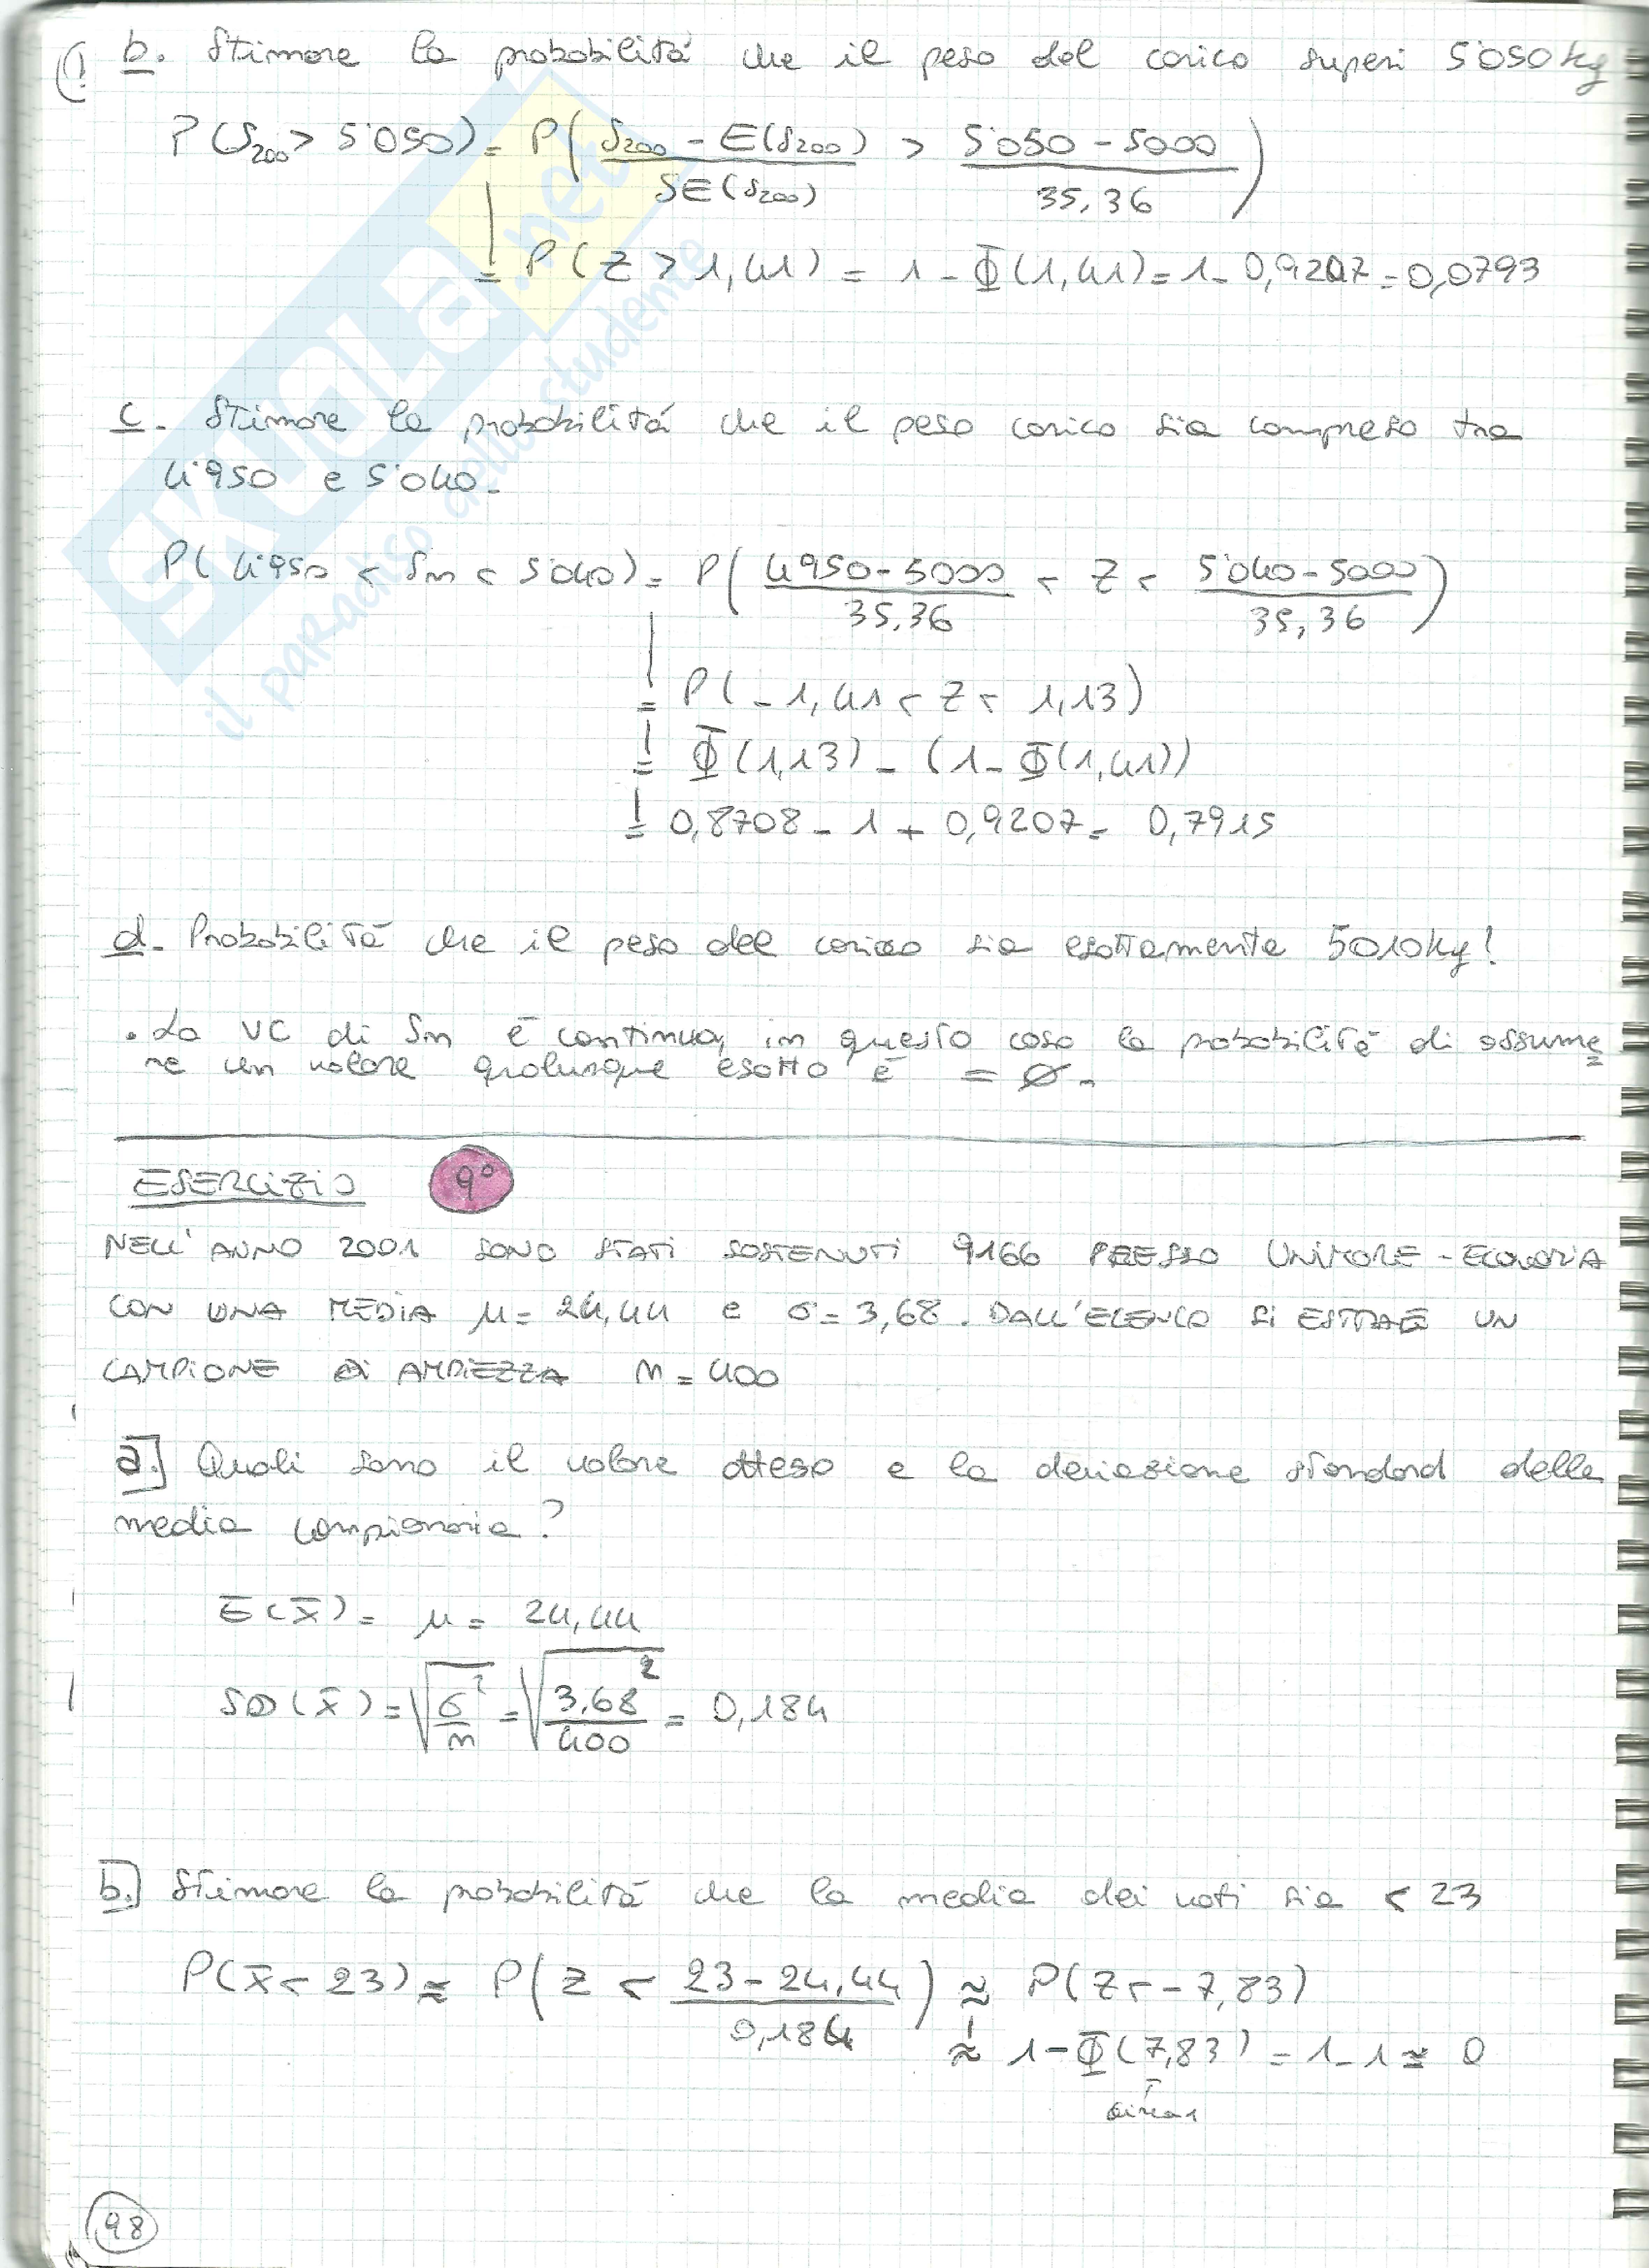 (! b. Stimare la probabilità che il peso del carico superi 5'050 kg
P(S200 > 5'050) = P( (S200 - E(S200)) / SE(S200) > (5'050 - 5000) / 35,36 )
= P(Z > 1,41) = 1 - Φ(1,41) = 1 - 0,9207 = 0,0793
c. Stimare la probabilità che il peso carico sia compreso tra
4'950 e 5'040.
P(4'950 < Sn < 5'040) = P( (4950 - 5000) / 35,36 < Z < (5'040 - 5000) / 35,36 )
= P(-1,41 < Z < 1,13)
= Φ(1,13) - (1 - Φ(1,41))
= 0,8708 - 1 + 0,9207 = 0,7915
d. Probabilità che il peso del carico sia esattamente 5010 kg!
. La VC di Sn è continua, in questo caso la probabilità di assume
re un valore qualunque esatto è = Ø.
ESERCIZIO 9°
NELL'ANNO 2001 SONO STATI SOSTENUTI 9166 PRESSO UNIMORE - ECONOMIA
CON UNA MEDIA μ = 24,44 e σ = 3,68. DALL'ELENCO SI ESTRAE UN
CAMPIONE DI AMPIEZZA n = 400
a.] Quali sono il valore atteso e la deviazione standard della
media campionaria?
E(x̄) = μ = 24,44
SD(x̄) = √(σ²/n) = √(3,68²/400) = 0,184
b.] Stimare la probabilità che la media dei voti sia < 23
P(x̄ < 23) ≈ P( Z < (23 - 24,44) / 0,184 ) ≈ P(Z < -7,83)
≈ 1 - Φ(7,83) = 1 - 1 ≃ 0
circa 1
98
SKUOLA.net
il paradiso dello studente